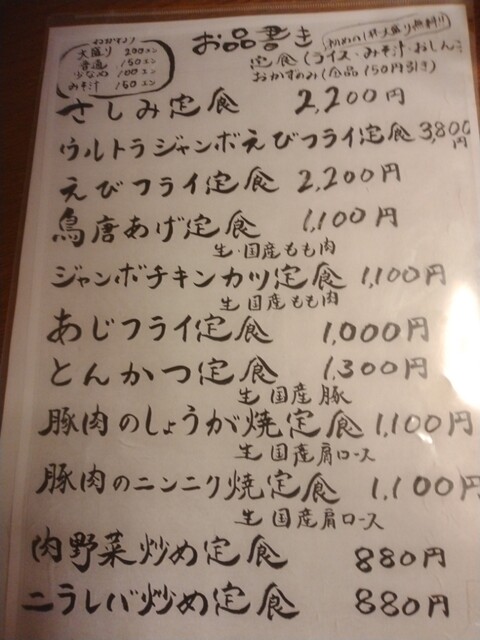 おかわり
大盛り 200エン
普通 150エン
少なめ 100エン
みそ汁 150エン
お品書き
初めの1杯大盛り無料!!
定食(ライス・みそ汁・おしんこ
おかずのみ(全品150円引き)
さしみ定食 2,200円
ウルトラジャンボえびフライ定食 3,800円
えびフライ定食 2,200円
鳥唐あげ定食 1,100円
生・国産もも肉
ジャンボチキンカツ定食 1,100円
生 国産もも肉
あじフライ定食 1,000円
とんかつ定食 1,300円
生 国産豚
豚肉のしょうが焼定食 1,100円
生 国産肩ロース
豚肉のニンニク焼定食 1,100円
生 国産肩ロース
肉野菜炒め定食 880円
ニラレバ炒め定食 880円